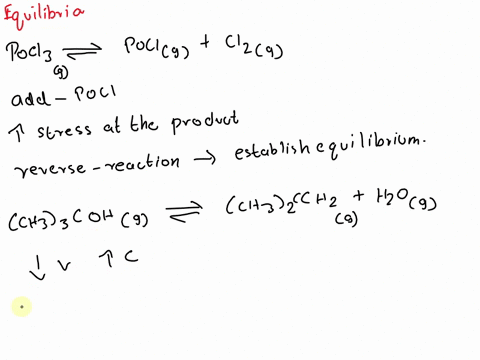 Equilibria
POCl3 (g) ⇌ POCl(g) + Cl2(g)
add - POCl
↑ stress at the product
reverse-reaction → establish equilibrium.
(CH3)3COH(g) ⇌ (CH3)2CCH2 (g) + H2O(g)
↓ V ↑ C